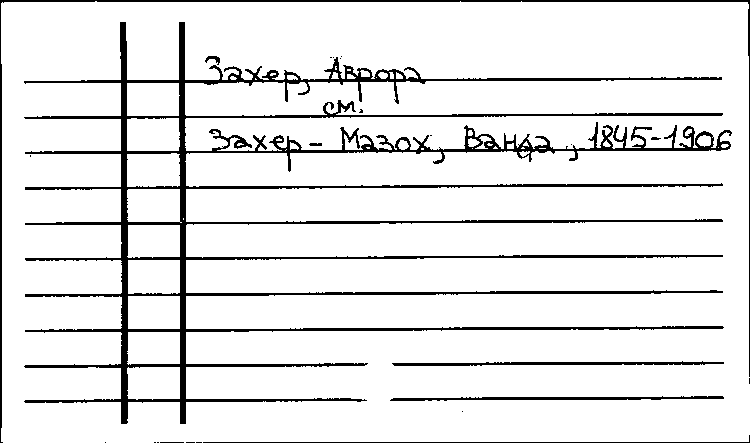 Захер, Аврора
см.
Захер - Мазох, Ванда, 1845-1906